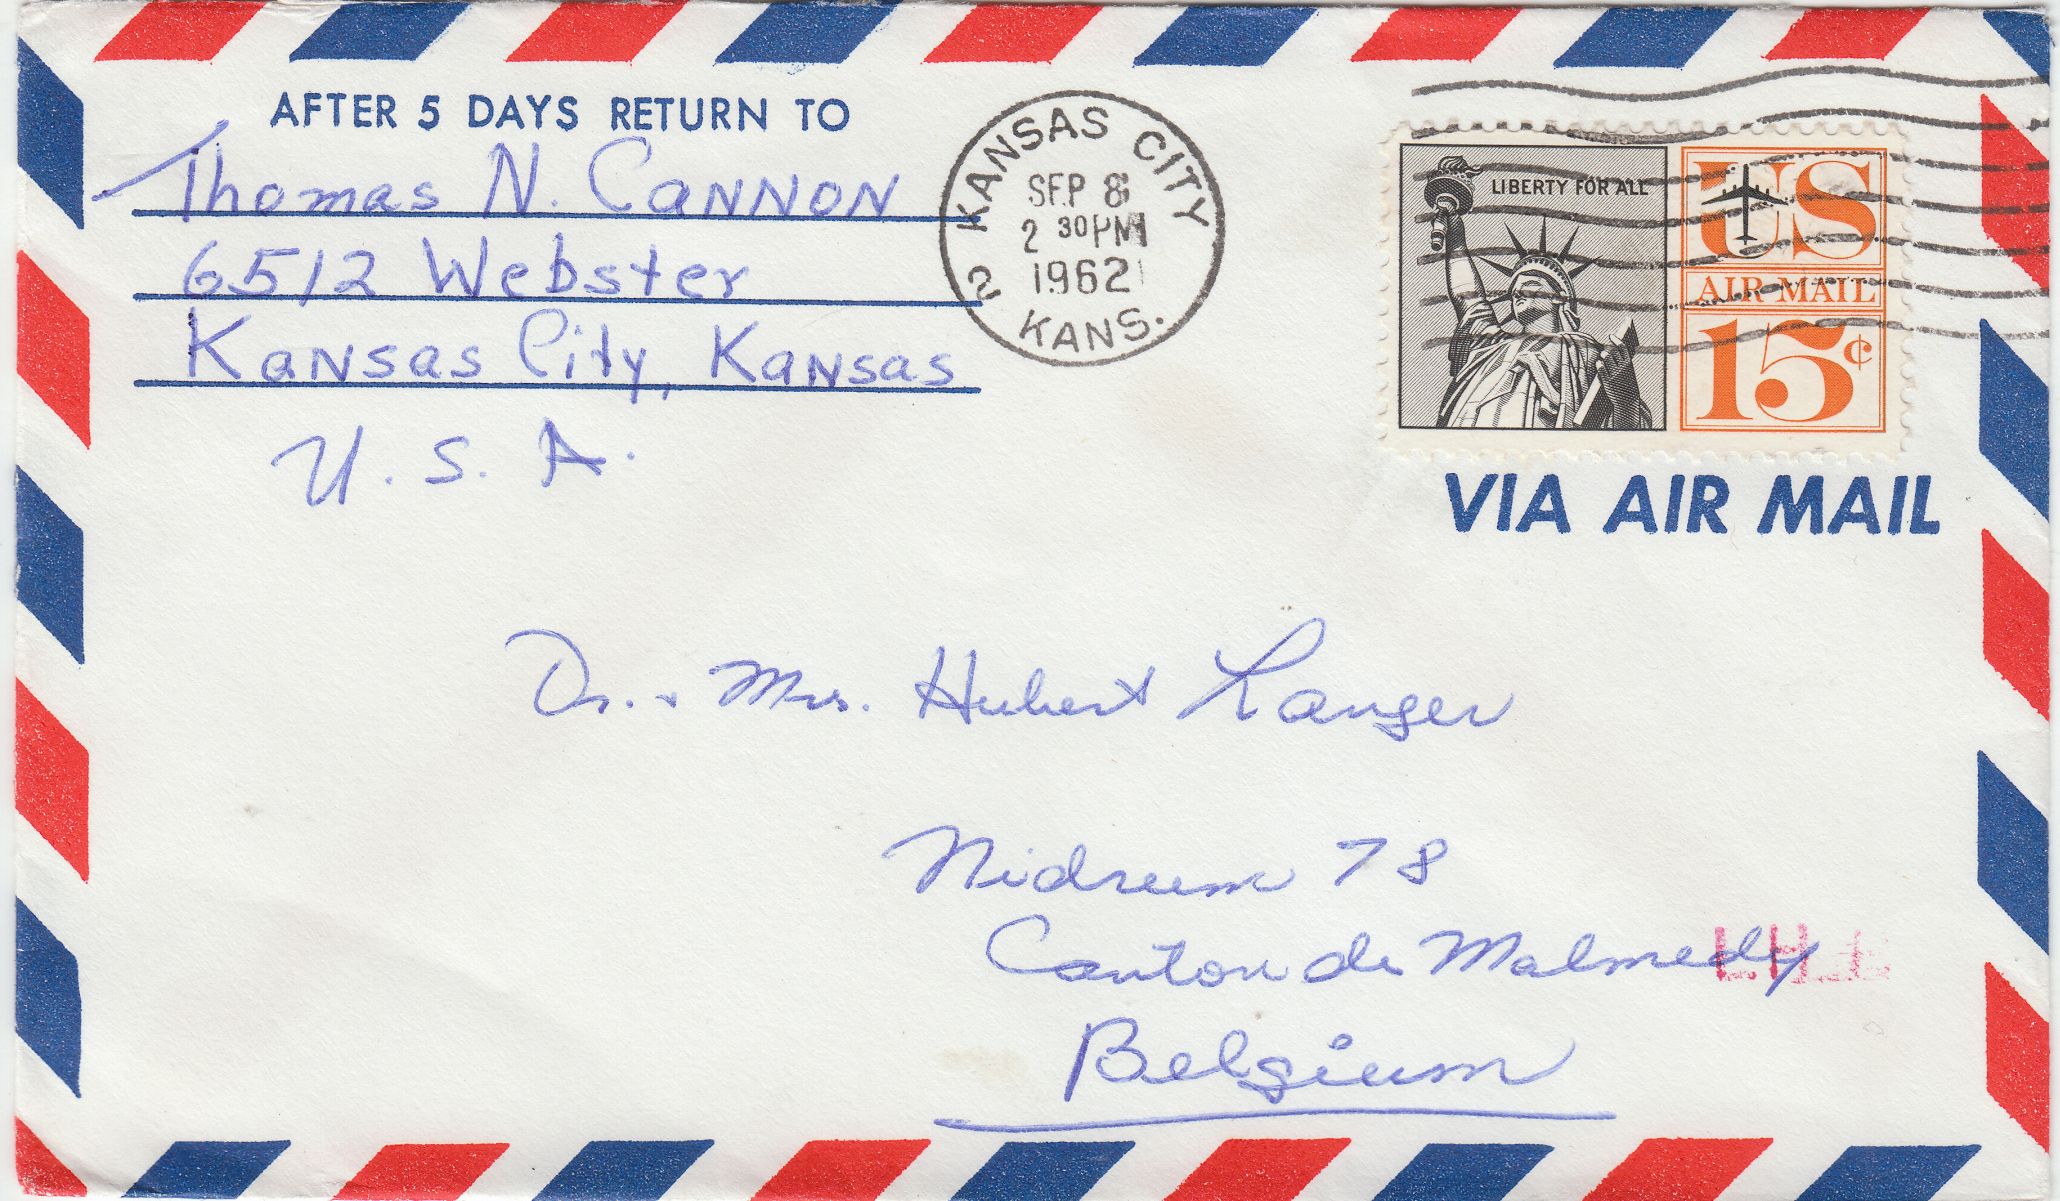 AFTER 5 DAYS RETURN TO
Thomas N. Cannon
6512 Webster
Kansas City, Kansas
U. S. A.
KANSAS CITY
SEP 8
2 30 PM
1962
2 KANS.
LIBERTY FOR ALL
US
AIR MAIL
15¢
VIA AIR MAIL
Dr. + Mrs. Hubert Langer
Nidrum 78
Canton de Malmedy
Belgium